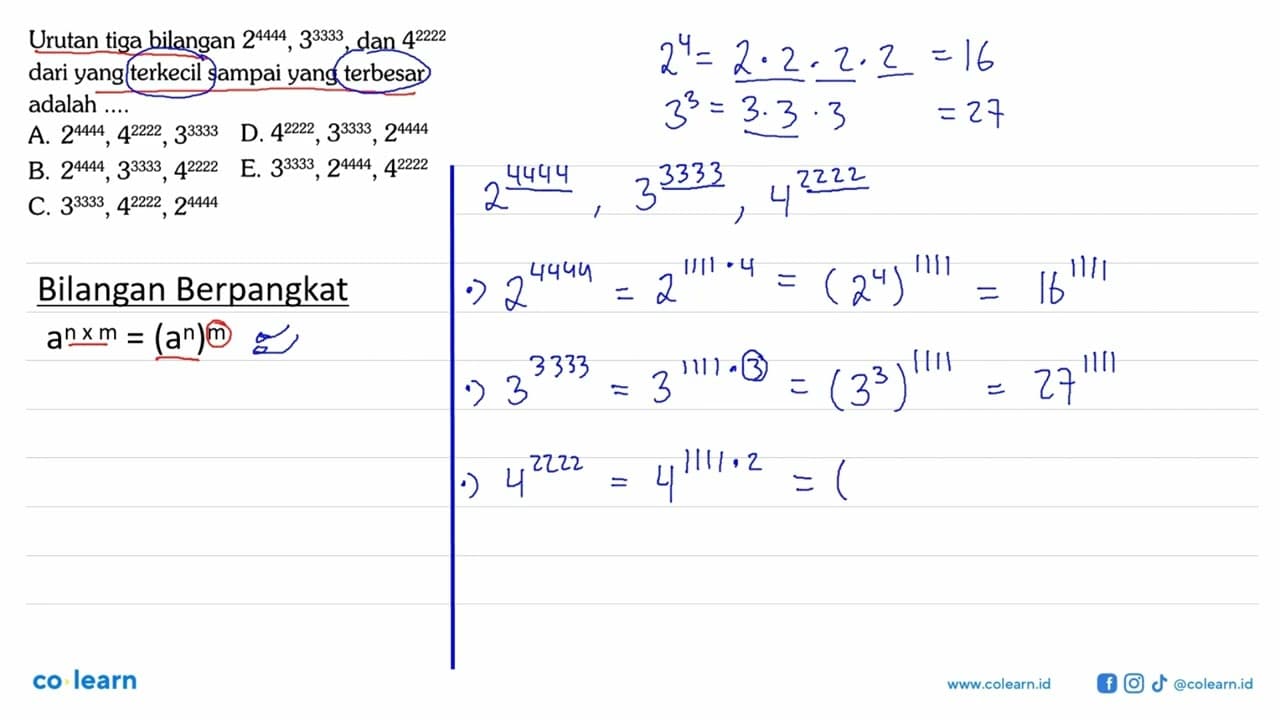 Urutan tiga bilangan 2⁴⁴⁴⁴, 3³³³³, dan 4²²²²
dari yang terkecil sampai yang terbesar
adalah ....
A. 2⁴⁴⁴⁴, 4²²²², 3³³³³
B. 2⁴⁴⁴⁴, 3³³³³, 4²²²²
C. 3³³³³, 4²²²², 2⁴⁴⁴⁴
D. 4²²²², 3³³³³, 2⁴⁴⁴⁴
E. 3³³³³, 2⁴⁴⁴⁴, 4²²²²
Bilangan Berpangkat
a^(n x m) = (aⁿ)^m
2⁴ = 2 · 2 · 2 · 2 = 16
3³ = 3 · 3 · 3 = 27
2⁴⁴⁴⁴, 3³³³³, 4²²²²
·) 2⁴⁴⁴⁴ = 2^(1111 · 4) = (2⁴)¹¹¹¹ = 16¹¹¹¹
·) 3³³³³ = 3^(1111 · 3) = (3³)¹¹¹¹ = 27¹¹¹¹
·) 4²²²² = 4^(1111 · 2) = (
co learn
www.colearn.id
@colearn.id